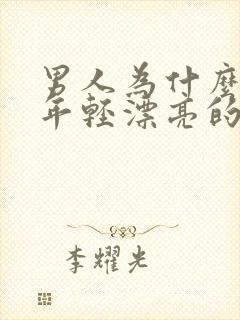 男人為什麼
年輕漂亮的
李耀光